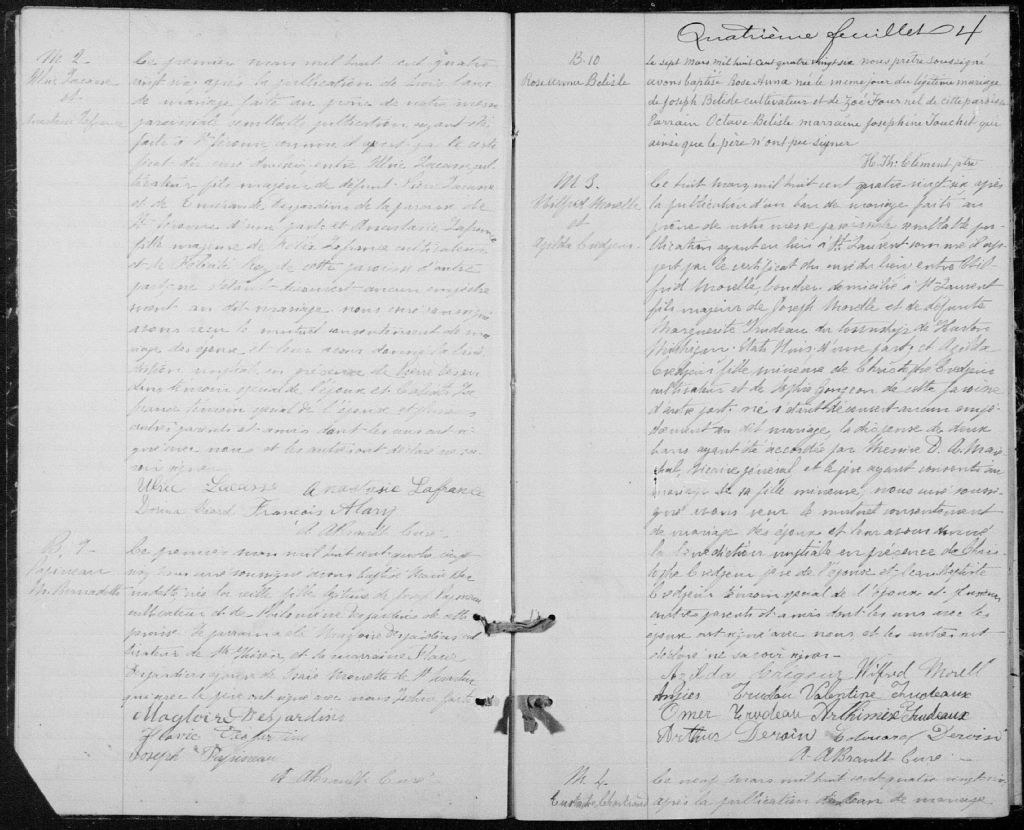 M. 2
Ulric Lacasse
et
Anastasie Lafrance
Ce premier mars mil huit cent quatre
vingt six après la publication de bans
de mariage faite au prône de notre messe
paroissiale semblable publication ayant été
faite à St Jérome comme il par le certi
ficat du curé du lieu, entre Ulric Lacasse cul
tivateur fils majeur de défunt Pierre Lacasse
et de Desjardins de la paroisse de
St Jérome d'une part; et Anastasie Lafrance
fille majeure de Félix Lafrance cultivateur
et de Félicité Roy de cette paroisse d'autre
part; ne s'étant découvert aucun empêche
ment au dit mariage nous curé soussigné
avons reçu le mutuel consentement de ma
riage des époux et leur avons donné la béné
diction nuptiale en présence de
témoin de l'époux et La
france témoin de l'épouse et plusieurs
autres parents et amis dont les uns ont si
gné avec nous et les autres ont déclaré ne sa
voir signer
Ulric Lacasse Anastasie Lafrance
François Alary
A. A. Brault Curé
B. 9
Papineau
M. Bernadette
Ce premier mars mil huit cent quatre vingt
six nous curé soussigné avons baptisé Marie Ber
nadette née la veille fille légitime de Joseph Papineau
cultivateur et de Philomène Desjardins de cette
paroisse. Le parrain a été Magloire Desjardins cul
tivateur de Ste Thérèse, et la marraine Flavie
Desjardins épouse de
qui avec le père ont signé avec nous. Lecture faite
Magloire Desjardins
Flavie
Joseph Papineau
A. A. Brault Curé
Quatrième feuillet 4
B. 10
Rose Anna Belisle
Le sept Mars mil huit cent quatre vingt six nous prêtre soussigné
avons baptisé Rose Anna née le même jour du légitime mariage
de Joseph Belisle cultivateur et de Zoé Fournel de cette paroisse
Parrain Octave Belisle marraine Josephine Touchet qui
ainsi que le père n'ont pu signer
H. Th. Clément ptre
M 3.
Wilfrid Morelle
et
Azilda Credgeur
Ce huit mars mil huit cent quatre vingt six après
la publication d'un ban de mariage faite au
prône de notre messe paroissiale semblable pu
blication ayant eu lieu à St Laurent comme il ap
pert par le certificat du curé du lieu entre Wil
frid Morelle, domicilié à St Laurent
fils majeur de Joseph Morelle et de défunte
Marguerite Trudeau du township de
Michigan États Unis d'une part; et Azilda
Credgeur fille mineure de Christophe Credgeur
cultivateur et de Sophie de cette paroisse
d'autre part; ne s'étant découvert aucun empê
chement au dit mariage, la dispense de deux
bans ayant été accordée par Messire D. A. Maré
chal, Vicaire général et le père ayant consenti au
mariage de sa fille mineure, nous curé soussi
gné avons reçu le mutuel consentement
de mariage des époux et leur avons donné
la bénédiction nuptiale en présence de Chris
tophe Credgeur père de l'épouse et Jean Baptiste
Credgeur témoin de l'époux et plusieurs
autres parents et amis dont les uns avec les
époux ont signé avec nous et les autres ont
déclaré ne savoir signer
Azilda Wilfred Morell
Trudau Valentine Trudeaux
Omer Trudeau Arthimise Trudeaux
Arthur Deroin Edouard Deroin
A. A. Brault Curé
M. 4
Eustache
Ce neuf mars mil huit cent quatre vingt six
après la publication de mariage